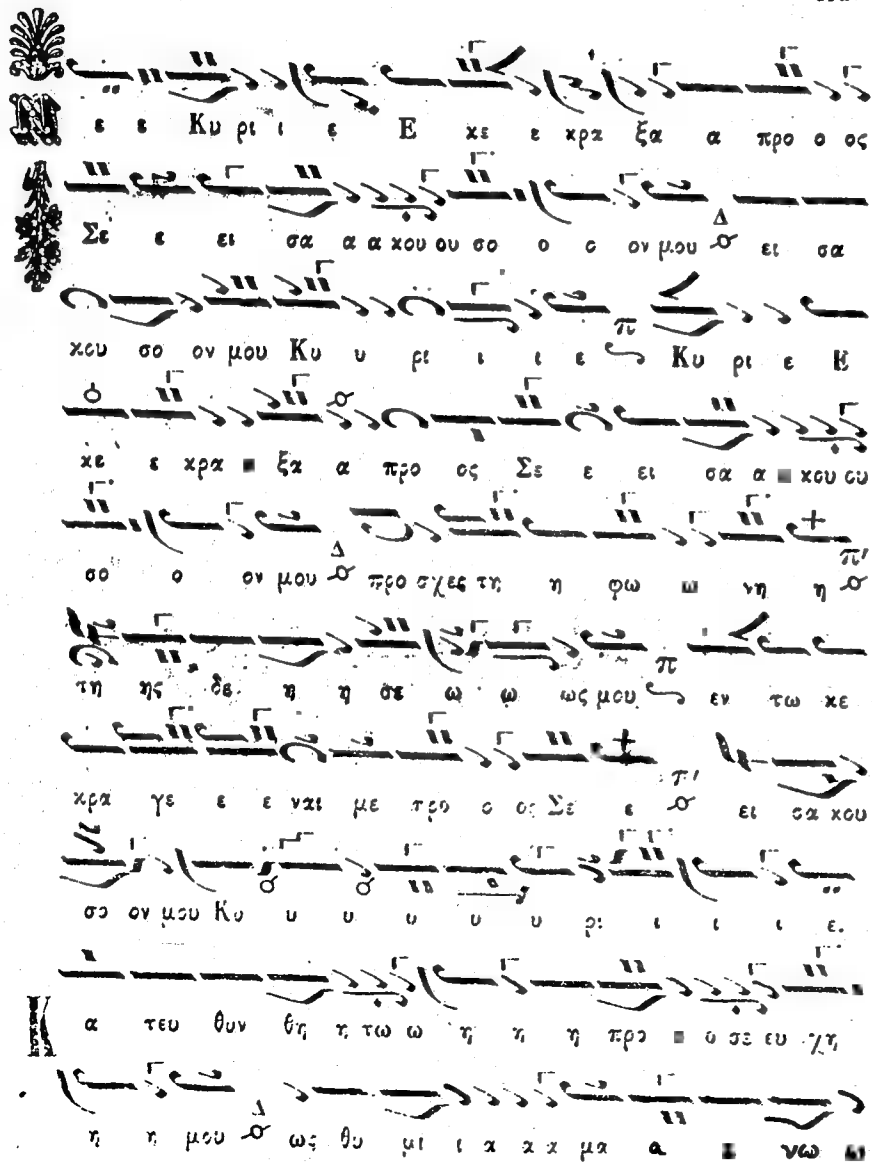 ε ε Κυ ρι ι ε Ε κε ε κρα ξα α προ ο ος
Σε ε ει σα α α κου ου σο ο ο ον μου Δ ει σα
κου σο ον μου Κυ υ ρι ι ι ε π Κυ ρι ε Ε
κε ε κρα ξα α προ ος Σε ε ει σα α κου ου
σο ο ον μου Δ προ σχες τη η φω ω νη η π′
τη ης δε η η σε ω ω ως μου π εν τω κε
κρα γε ε ε ναι με προ ο ος Σε ε π′ ει σα κου
σο ον μου Κυ υ υ υ υ υ ρι ι ι ι ε.
Κ α τευ θυν θη η τω ω η η η προ ο σε ευ χη
η η μου Δ ως θυ μι ι α α α μα α νω